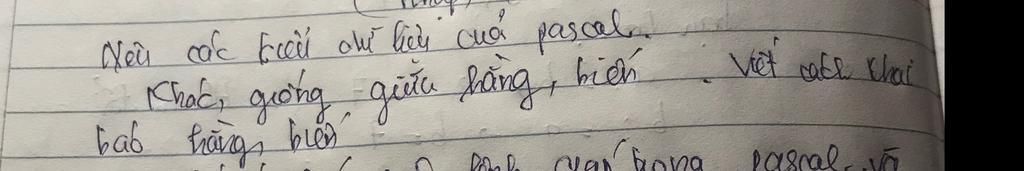 Nêu các kiểu dữ liệu của pascal.
Khác, giống giữa hằng, biến. Viết cách khai
báo hằng, biến
pascal và